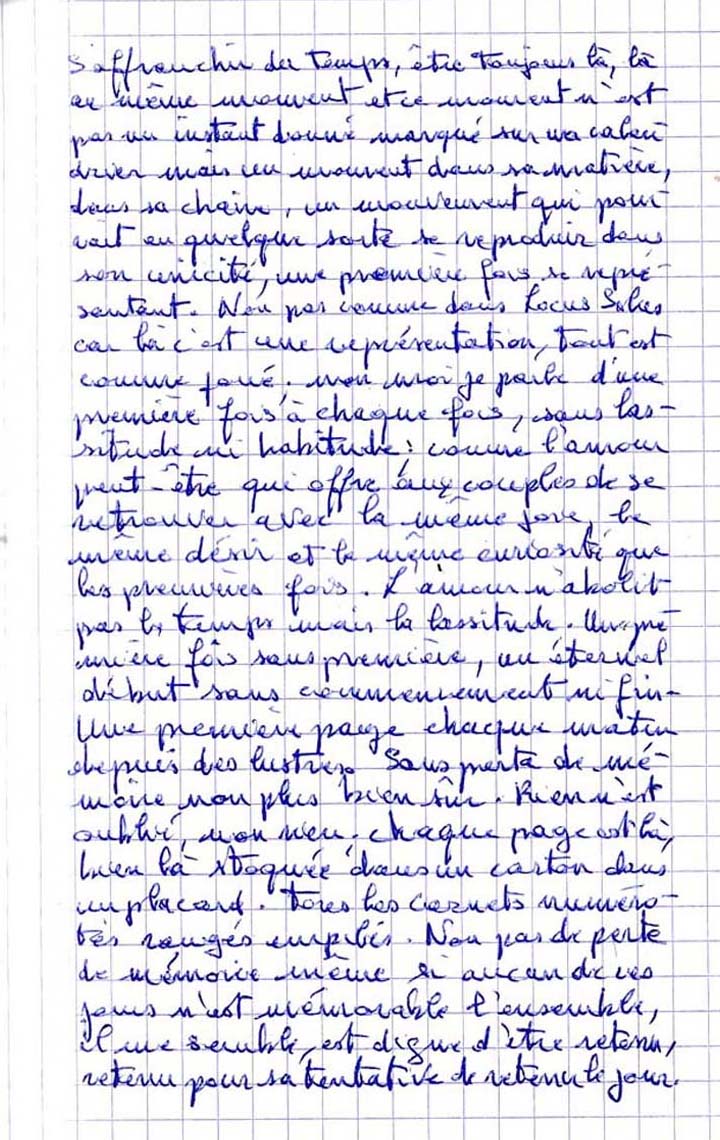 S'affranchir du temps, être toujours là, là
au même moment et ce moment n'est
pas un instant donné marqué sur un calen-
drier mais un moment dans sa matière,
dans sa chair, un mouvement qui pour-
rait en quelque sorte se reproduire dans
son unicité, une première fois se repré-
sentant. Non pas comme dans Locus Solus
car là c'est une représentation, tout est
comme joué, non moi je parle d'une
première fois à chaque fois, sans las-
situde ni habitude : comme l'amour
peut-être qui offre aux couples de se
retrouver avec la même joie, le
même désir et la même curiosité que
les premières fois. L'amour n'abolit
pas le temps mais la lassitude. Une pre-
mière fois sans première, un éternel
début sans commencement ni fin.
Une première page chaque matin
depuis des lustres. Sans perte de mé-
moire non plus bien sûr. Rien n'est
oublié, non rien, chaque page est là,
bien là stoquée dans un carton dans
un placard. Tous les carnets numéro-
tés rangés empilés. Non pas de perte
de mémoire même si aucun de ces
jours n'est mémorable l'ensemble,
il me semble, est digne d'être retenu,
retenu pour sa tentative de retenir le jour.